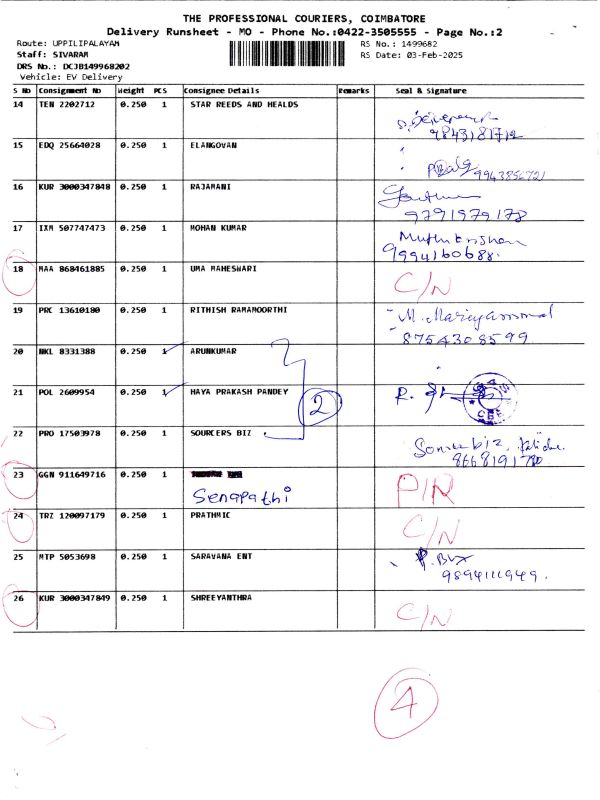 THE PROFESSIONAL COURIERS, COIMBATORE
Delivery Runsheet - MO - Phone No.:0422-3505555 - Page No.:2
Route: UPPILIPALAYAM RS No.: 1499682
Staff: SIVARAM RS Date: 03-Feb-2025
DRS No.: DCJB149968202
Vehicle: EV Delivery
S No Consignment No Weight PCS Consignee Details Remarks Seal & Signature
14 TEN 2202712 0.250 1 STAR REEDS AND HEALDS
9843181712
15 EDQ 25664028 0.250 1 ELANGOVAN
9943856721
16 KUR 3000347848 0.250 1 RAJAMANI
9791979178
17 IXM 507747473 0.250 1 MOHAN KUMAR Muthukrishnan
9994160688.
18 MAA 868461885 0.250 1 UMA MAHESWARI C/N
19 PRC 13610180 0.250 1 RITHISH RAMAMOORTHI M. Mariyammal
8754308599
20 NKL 8331388 0.250 1 ARUNKUMAR
21 POL 2609954 0.250 1 HAYA PRAKASH PANDEY 2 R.
22 PRO 17503978 0.250 1 SOURCERS BIZ
8668191780
23 GGN 911649716 0.250 1 Senapathi P/R
24 TRZ 120097179 0.250 1 PRATHMIC C/N
25 MTP 5053698 0.250 1 SARAVANA ENT
9894111949.
26 KUR 3000347849 0.250 1 SHREEYANTHRA C/N
4